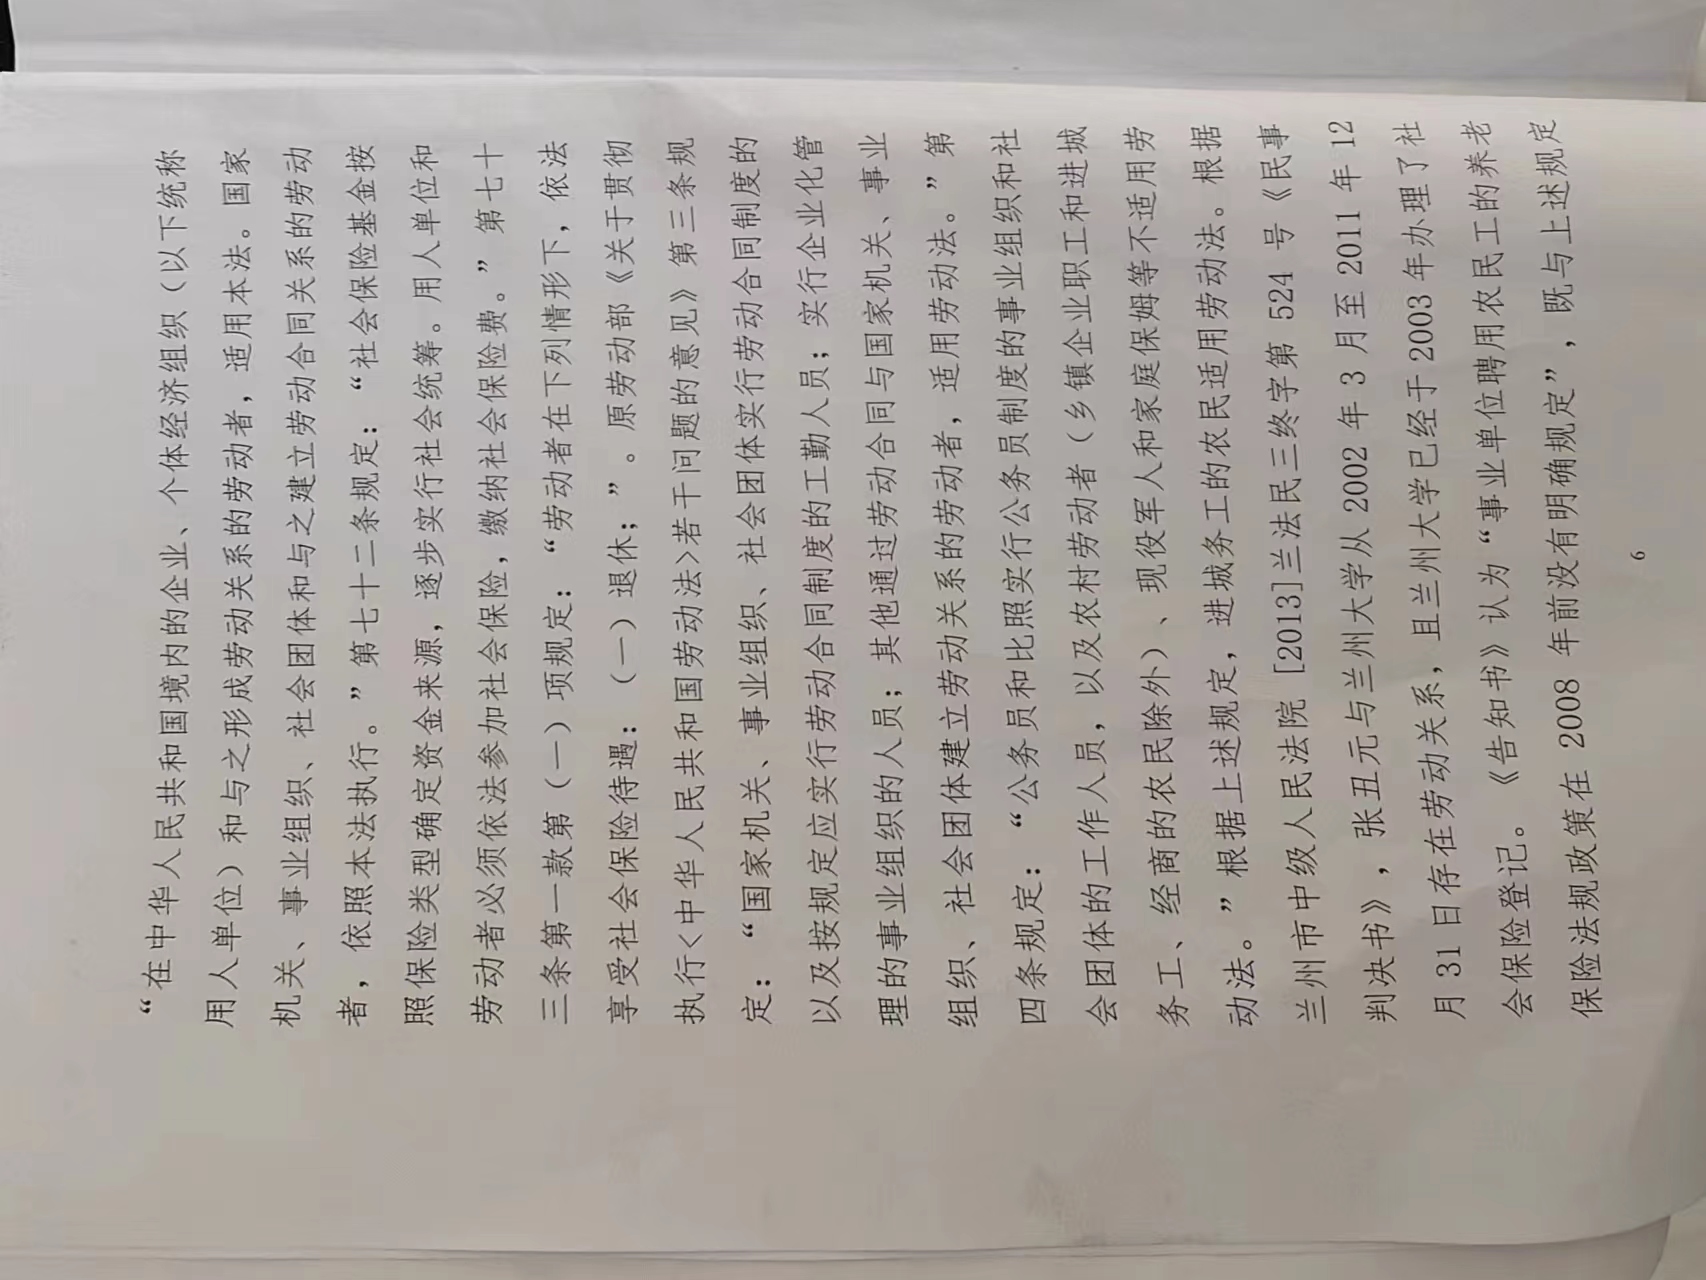 “在中华人民共和国境内的企业、个体经济组织（以下统称
用人单位）和与之形成劳动关系的劳动者，适用本法。国家
机关、事业组织、社会团体和与之建立劳动合同关系的劳动
者，依照本法执行。”第七十二条规定：“社会保险基金按
照保险类型确定资金来源，逐步实行社会统筹。用人单位和
劳动者必须依法参加社会保险，缴纳社会保险费。”第七十
三条第一款第（一）项规定：“劳动者在下列情形下，依法
享受社会保险待遇：（一）退休；”。原劳动部《关于贯彻
执行<中华人民共和国劳动法>若干问题的意见》第三条规
定：“国家机关、事业组织、社会团体实行劳动合同制度的
以及按规定应实行劳动合同制度的工勤人员；实行企业化管
理的事业组织的人员；其他通过劳动合同与国家机关、事业
组织、社会团体建立劳动关系的劳动者，适用劳动法。”第
四条规定：“公务员和比照实行公务员制度的事业组织和社
会团体的工作人员，以及农村劳动者（乡镇企业职工和进城
务工、经商的农民除外）、现役军人和家庭保姆等不适用劳
动法。”根据上述规定，进城务工的农民适用劳动法。根据
兰州市中级人民法院[2013]兰法民三终字第 524 号《民事
判决书》，张丑元与兰州大学从 2002 年 3 月至 2011 年 12
月 31 日存在劳动关系，且兰州大学已经于 2003 年办理了社
会保险登记。《告知书》认为“事业单位聘用农民工的养老
保险法规政策在 2008 年前没有明确规定”，既与上述规定
6